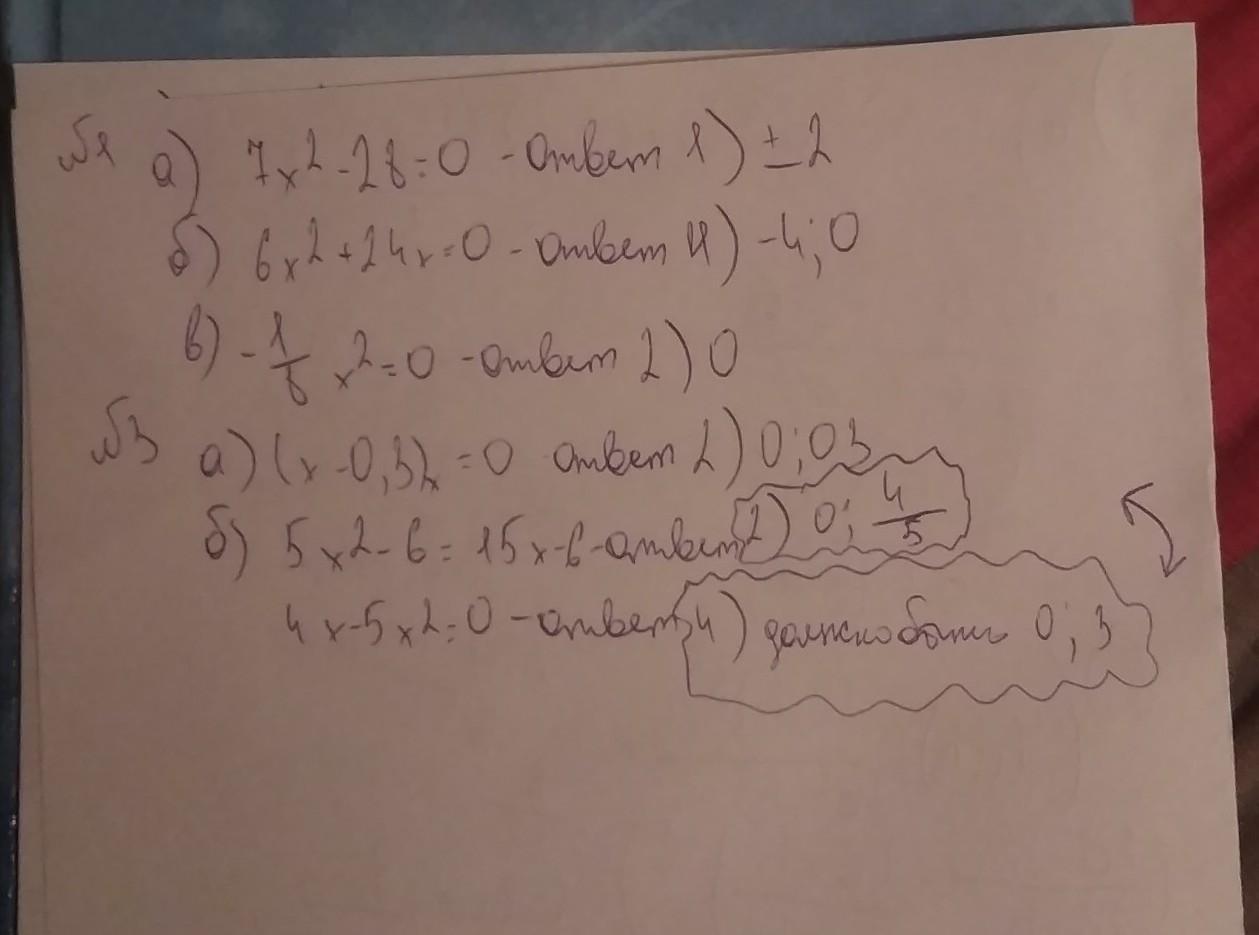 №1 а) 7x² - 28 = 0 - ответ 1) ± 2
б) 6x² + 24x = 0 - ответ 4) -4; 0
в) - 1/8 x² = 0 - ответ 2) 0
№3 а) (x - 0,3)x = 0 ответ 2) 0; 03
б) 5x² - 6 = 15x - 6 - ответ 2) 0; 4/5
4x - 5x² = 0 - ответ 4) должно быть 0; 3